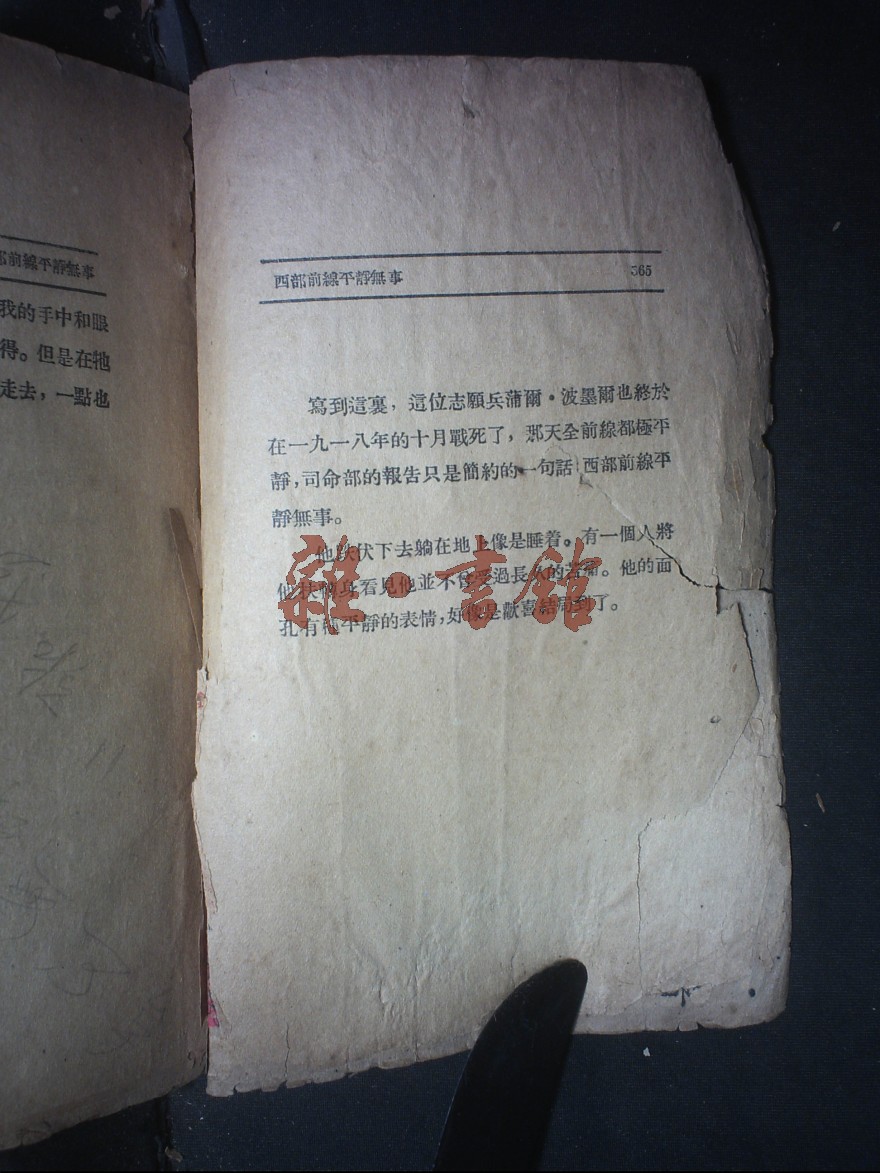 部前線平靜無事
我的手中和眼
得。但是在牠
走去，一點也
西部前線平靜無事 365
寫到這裏，這位志願兵蒲爾·波墨爾也終於
在一九一八年的十月戰死了，那天全前線都極平
靜，司命部的報告只是簡約的一句話：西部前線平
靜無事。
他跌伏下去躺在地上像是睡着。有一個人將
他扶轉身看見他並不像受過長久的苦痛。他的面
孔有種平靜的表情，好像是歡喜結局到了。
雜·書館